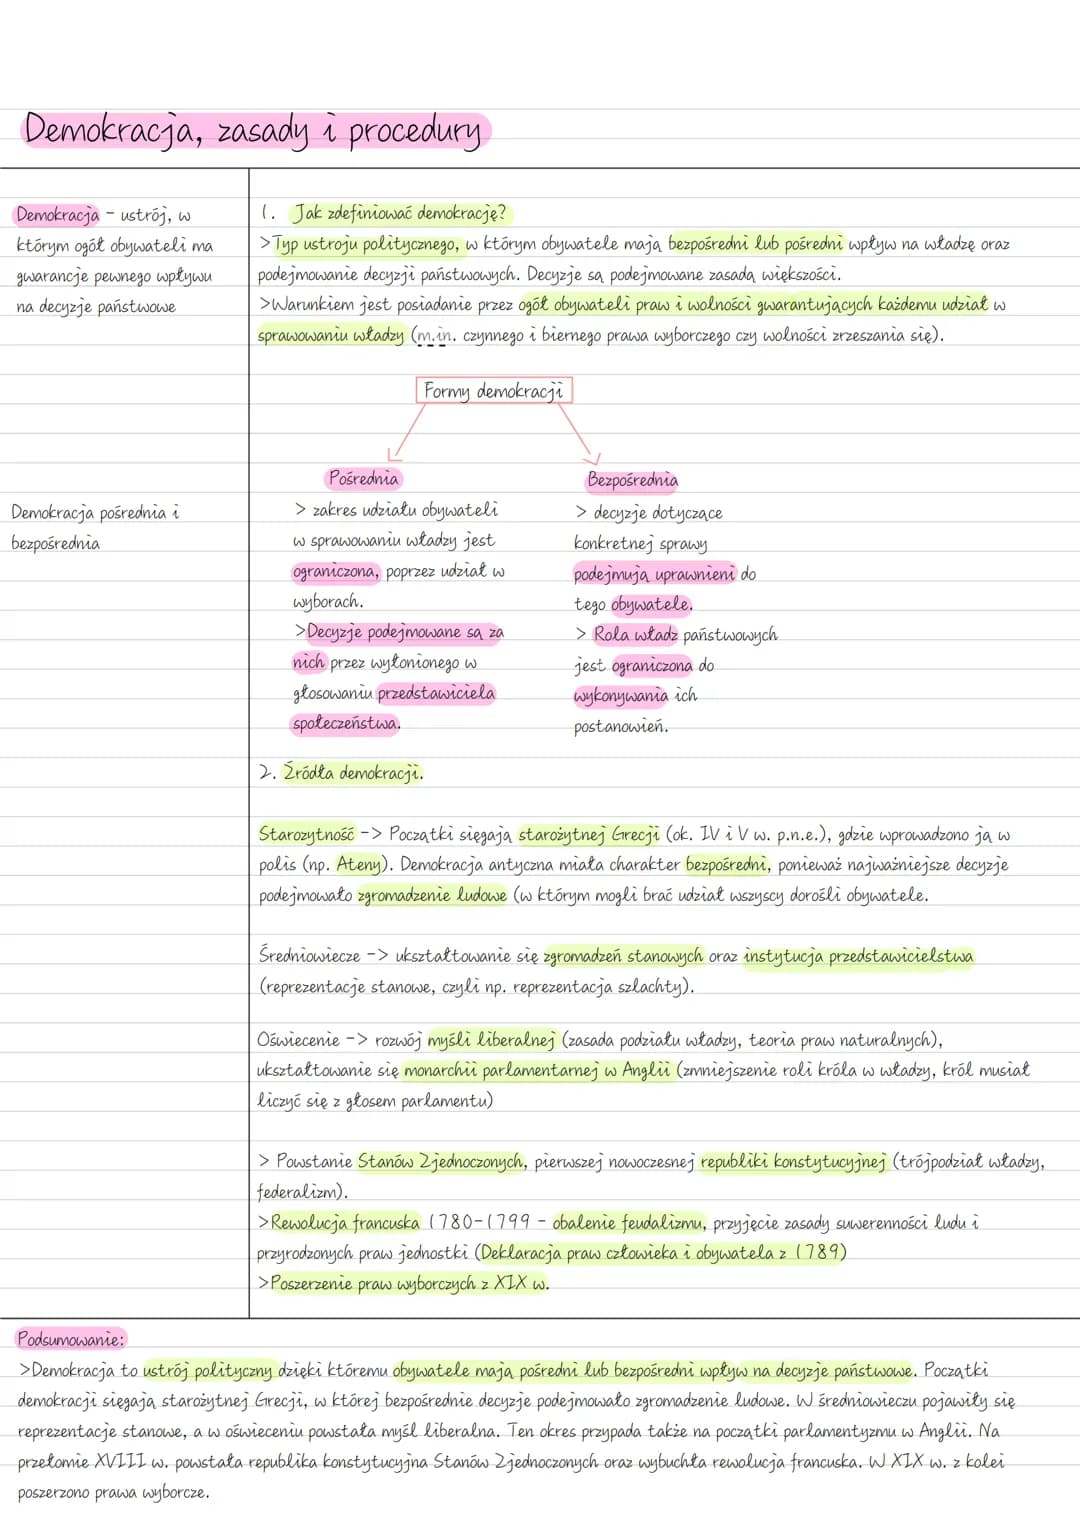 Demokracja, zasady i procedury
Demokracja - ustrój, w
którym ogół obywateli ma
gwarancje pewnego wpływu
na decyzje państwowe
1. Jak zdefiniować demokrację?
>Typ ustroju politycznego, w którym obywatele mają bezpośredni lub pośredni wpływ na władzę oraz
podejmowanie decyzji państwowych. Decyzje są podejmowane zasadą większości.
>Warunkiem jest posiadanie przez ogół obywateli praw i wolności gwarantujących każdemu udział w
sprawowaniu władzy (m.in. czynnego i biernego prawa wyborczego czy wolności zrzeszania się).
Formy demokracji
Demokracja pośrednia i
bezpośrednia
Pośrednia
> zakres udziału obywateli
w sprawowaniu władzy jest
ograniczona, poprzez udział w
wyborach.
>Decyzje podejmowane są za
nich przez wyłonionego w
głosowaniu przedstawiciela
społeczeństwa.
Bezpośrednia
> decyzje dotyczące
konkretnej sprawy
podejmują uprawnieni do
tego obywatele.
> Rola władz państwowych
jest ograniczona do
wykonywania ich
postanowień.
2. Źródła demokracji.
Starozytność -> Początki sięgają starożytnej Grecji (ok. IV i V w. p.n.e.), gdzie wprowadzono ją w
polis (np. Ateny). Demokracja antyczna miała charakter bezpośredni, ponieważ najważniejsze decyzje
podejmowało zgromadzenie ludowe (w którym mogli brać udział wszyscy dorośli obywatele.
Średniowiecze -> ukształtowanie się zgromadzeń stanowych oraz instytucja przedstawicielstwa
(reprezentacje stanowe, czyli np. reprezentacja szlachty).
Oświecenie -> rozwój myśli liberalnej (zasada podziału władzy, teoria praw naturalnych),
ukształtowanie się monarchii parlamentarnej w Anglii (zmniejszenie roli króla w władzy, król musiał
liczyć się z głosem parlamentu)
> Powstanie Stanów Zjednoczonych, pierwszej nowoczesnej republiki konstytucyjnej (trójpodział władzy,
federalizm).
>Rewolucja francuska 1780-1799 - obalenie feudalizmu, przyjęcie zasady suwerenności ludu i
przyrodzonych praw jednostki (Deklaracja praw człowieka i obywatela z 1789)
>Poszerzenie praw wyborczych z XIX w.
Podsumowanie:
>Demokracja to ustrój polityczny dzięki któremu obywatele mają pośredni lub bezpośredni wpływ na decyzje państwowe. Początki
demokracji sięgają starożytnej Grecji, w której bezpośrednie decyzje podejmowało zgromadzenie ludowe. W średniowieczu pojawiły się
reprezentacje stanowe, a w oświeceniu powstała myśl liberalna. Ten okres przypada także na początki parlamentyzmu w Anglii. Na
przełomie XVIII w. powstała republika konstytucyjna Stanów Zjednoczonych oraz wybuchła rewolucja francuska. W XIX w. z kolei
poszerzono prawa wyborcze.